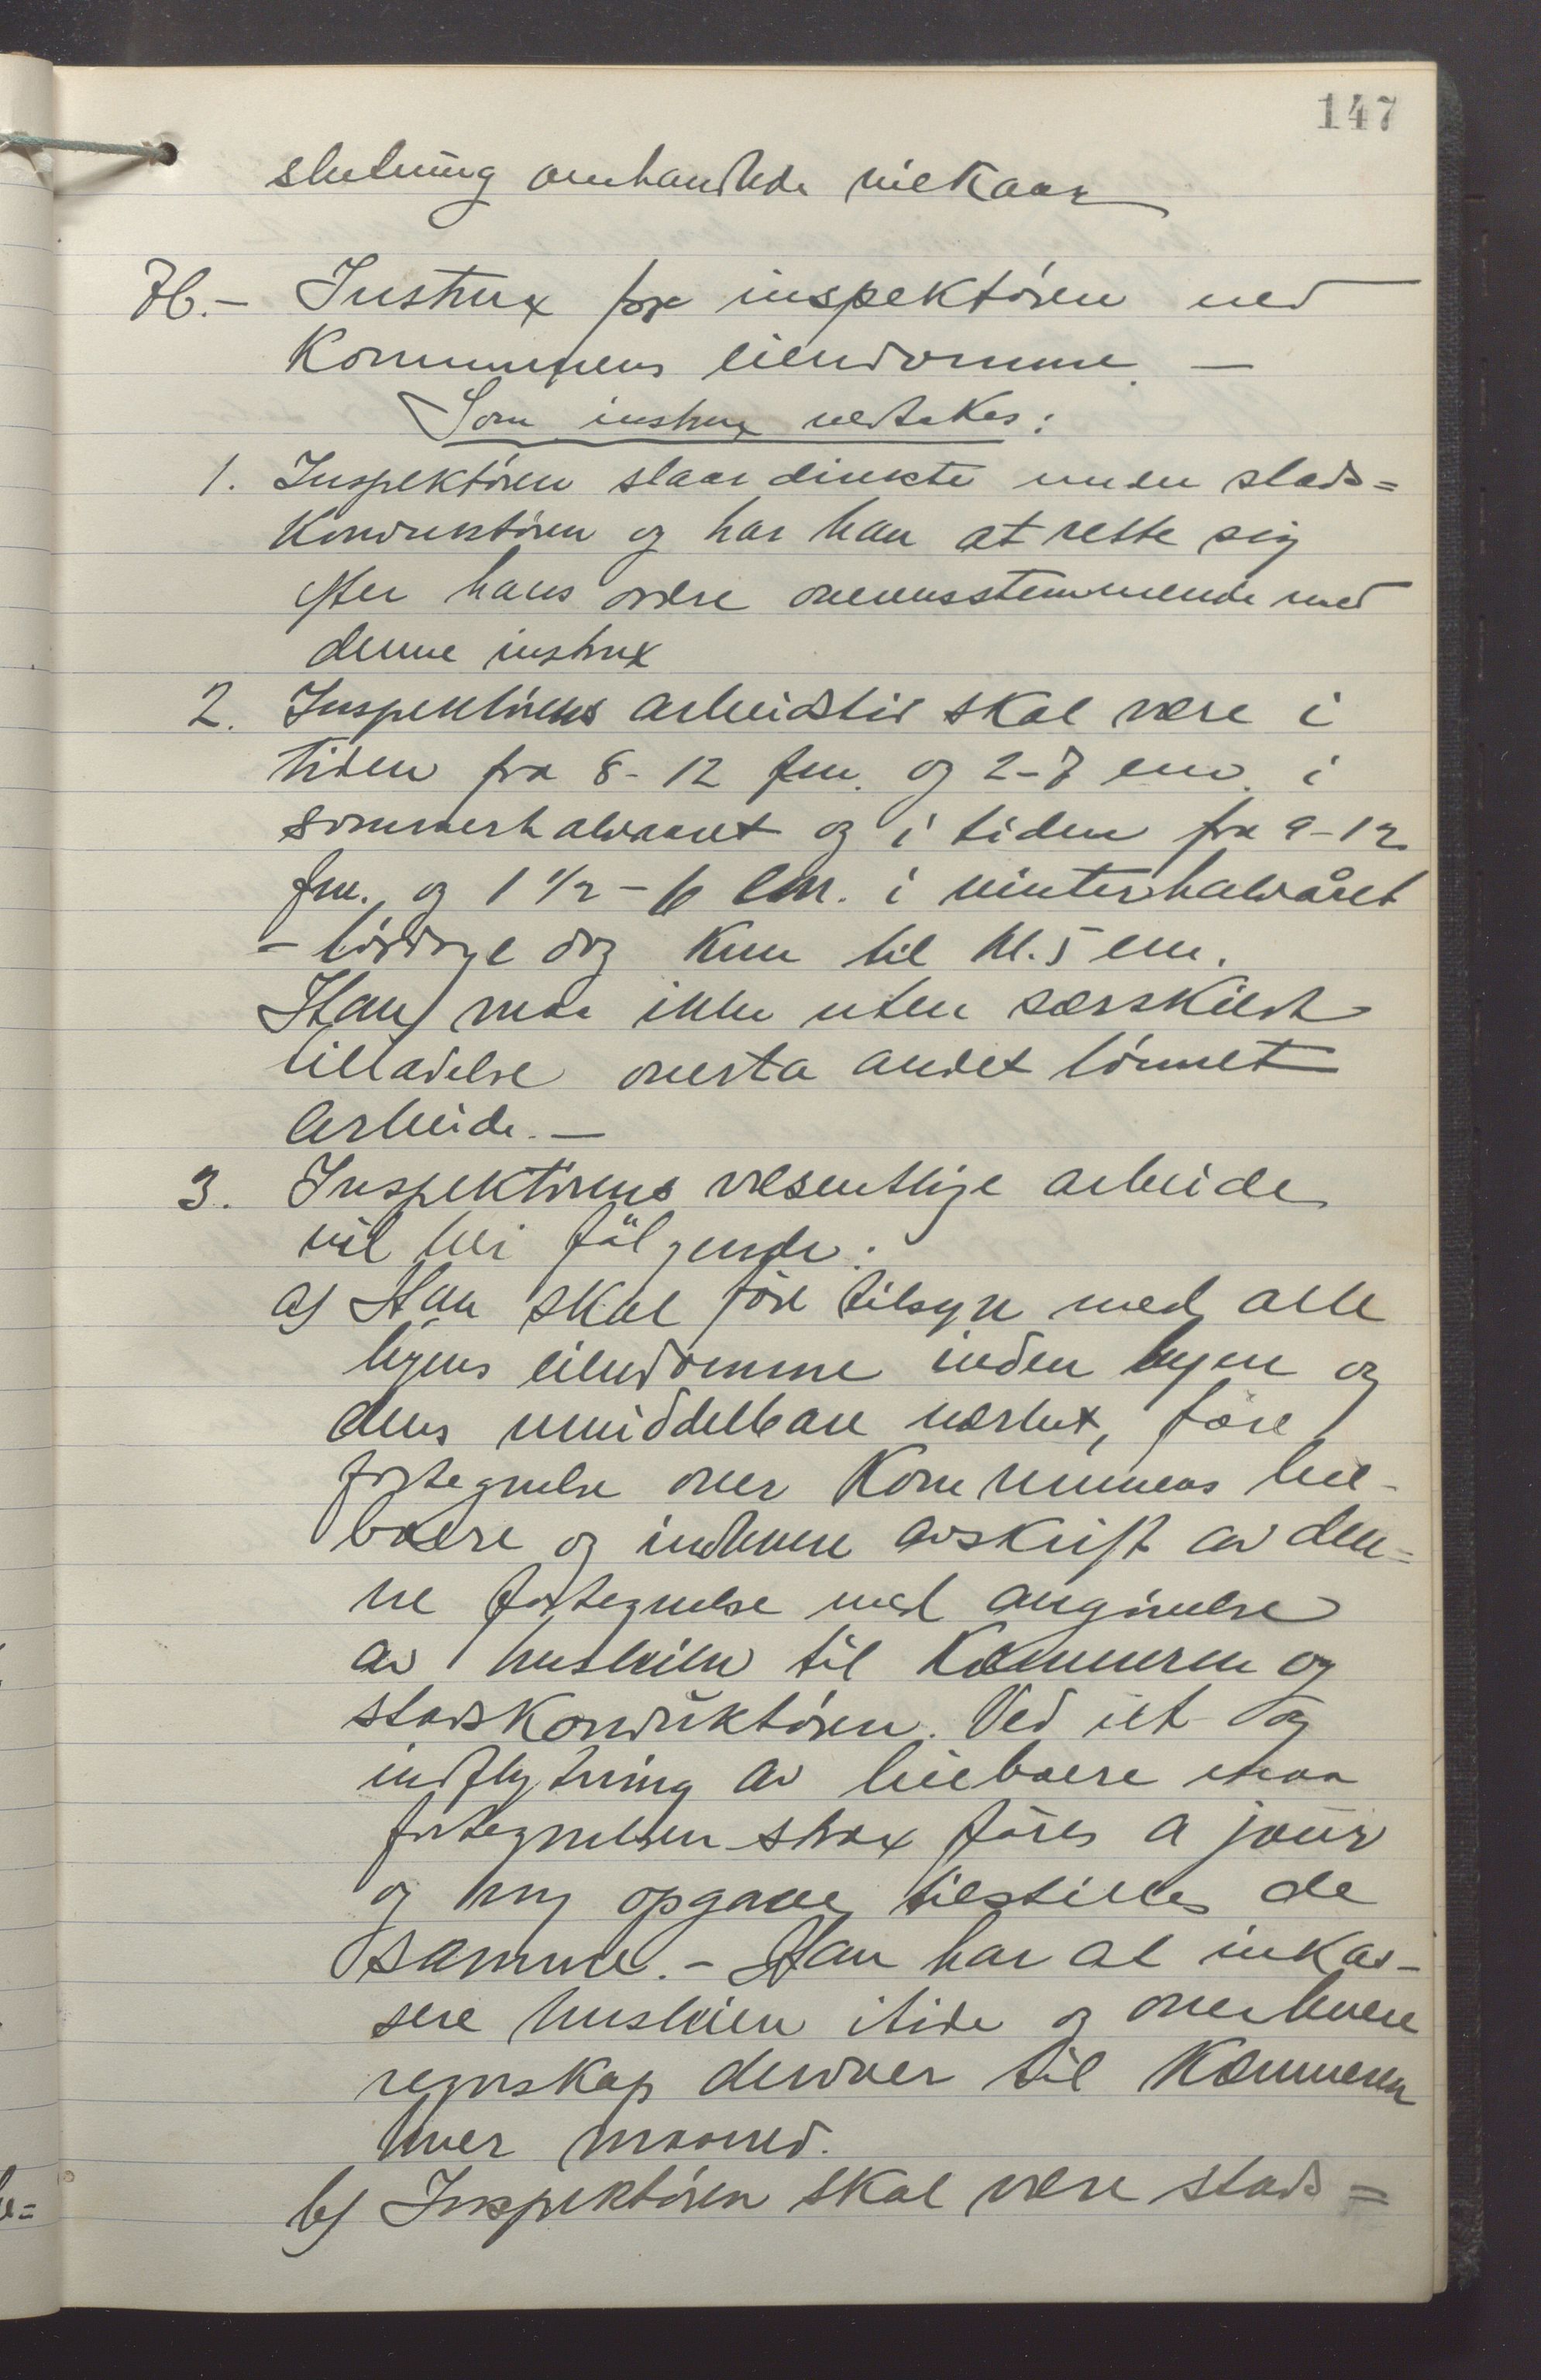 147
slutning omhandlede vilkaar
76. – Instrux for inspektören ved
Kommunens eiendomme. –
Som instrux vedtakes:
1. Inspektören staar direkte under stads=
konduktören og har han at rette sig
efter hans ordre overensstemmende med
denne instrux
2. Inspektörens arbeidstid skal være i
tiden fra 8-12 fm. og 2-7 em. i
sommerhalvaaret og i tiden fra 9-12
fm. og 1 1/2 - 6 em. i vinterhalvåret
- lördage dog kun til kl. 5 em.
Han maa ikke uten særskildt
tilladelse overta andet lönnet
arbeide. –
3. Inspektörens væsentlige arbeide
vil bli fölgende:
a) Han skal före tilsyn med alle
byens eiendomme inden byen og
dens umiddelbare nærhet, före
fortegnelse over Kommunens leie-
boere og indlevere avskrift av den=
ne fortegnelse med angivelse
av husleien til Kæmneren og
stadskonduktören. Ved ut og
indflytning av leieboere maa
fortegnelsen strax föres a jour
og ny opgave tilstilles de
samme. – Han har at inkas-
sere husleien itide og overlevere
regnskap derover til Kæmneren
hver maaned.
b) Inspektören skal være stads=